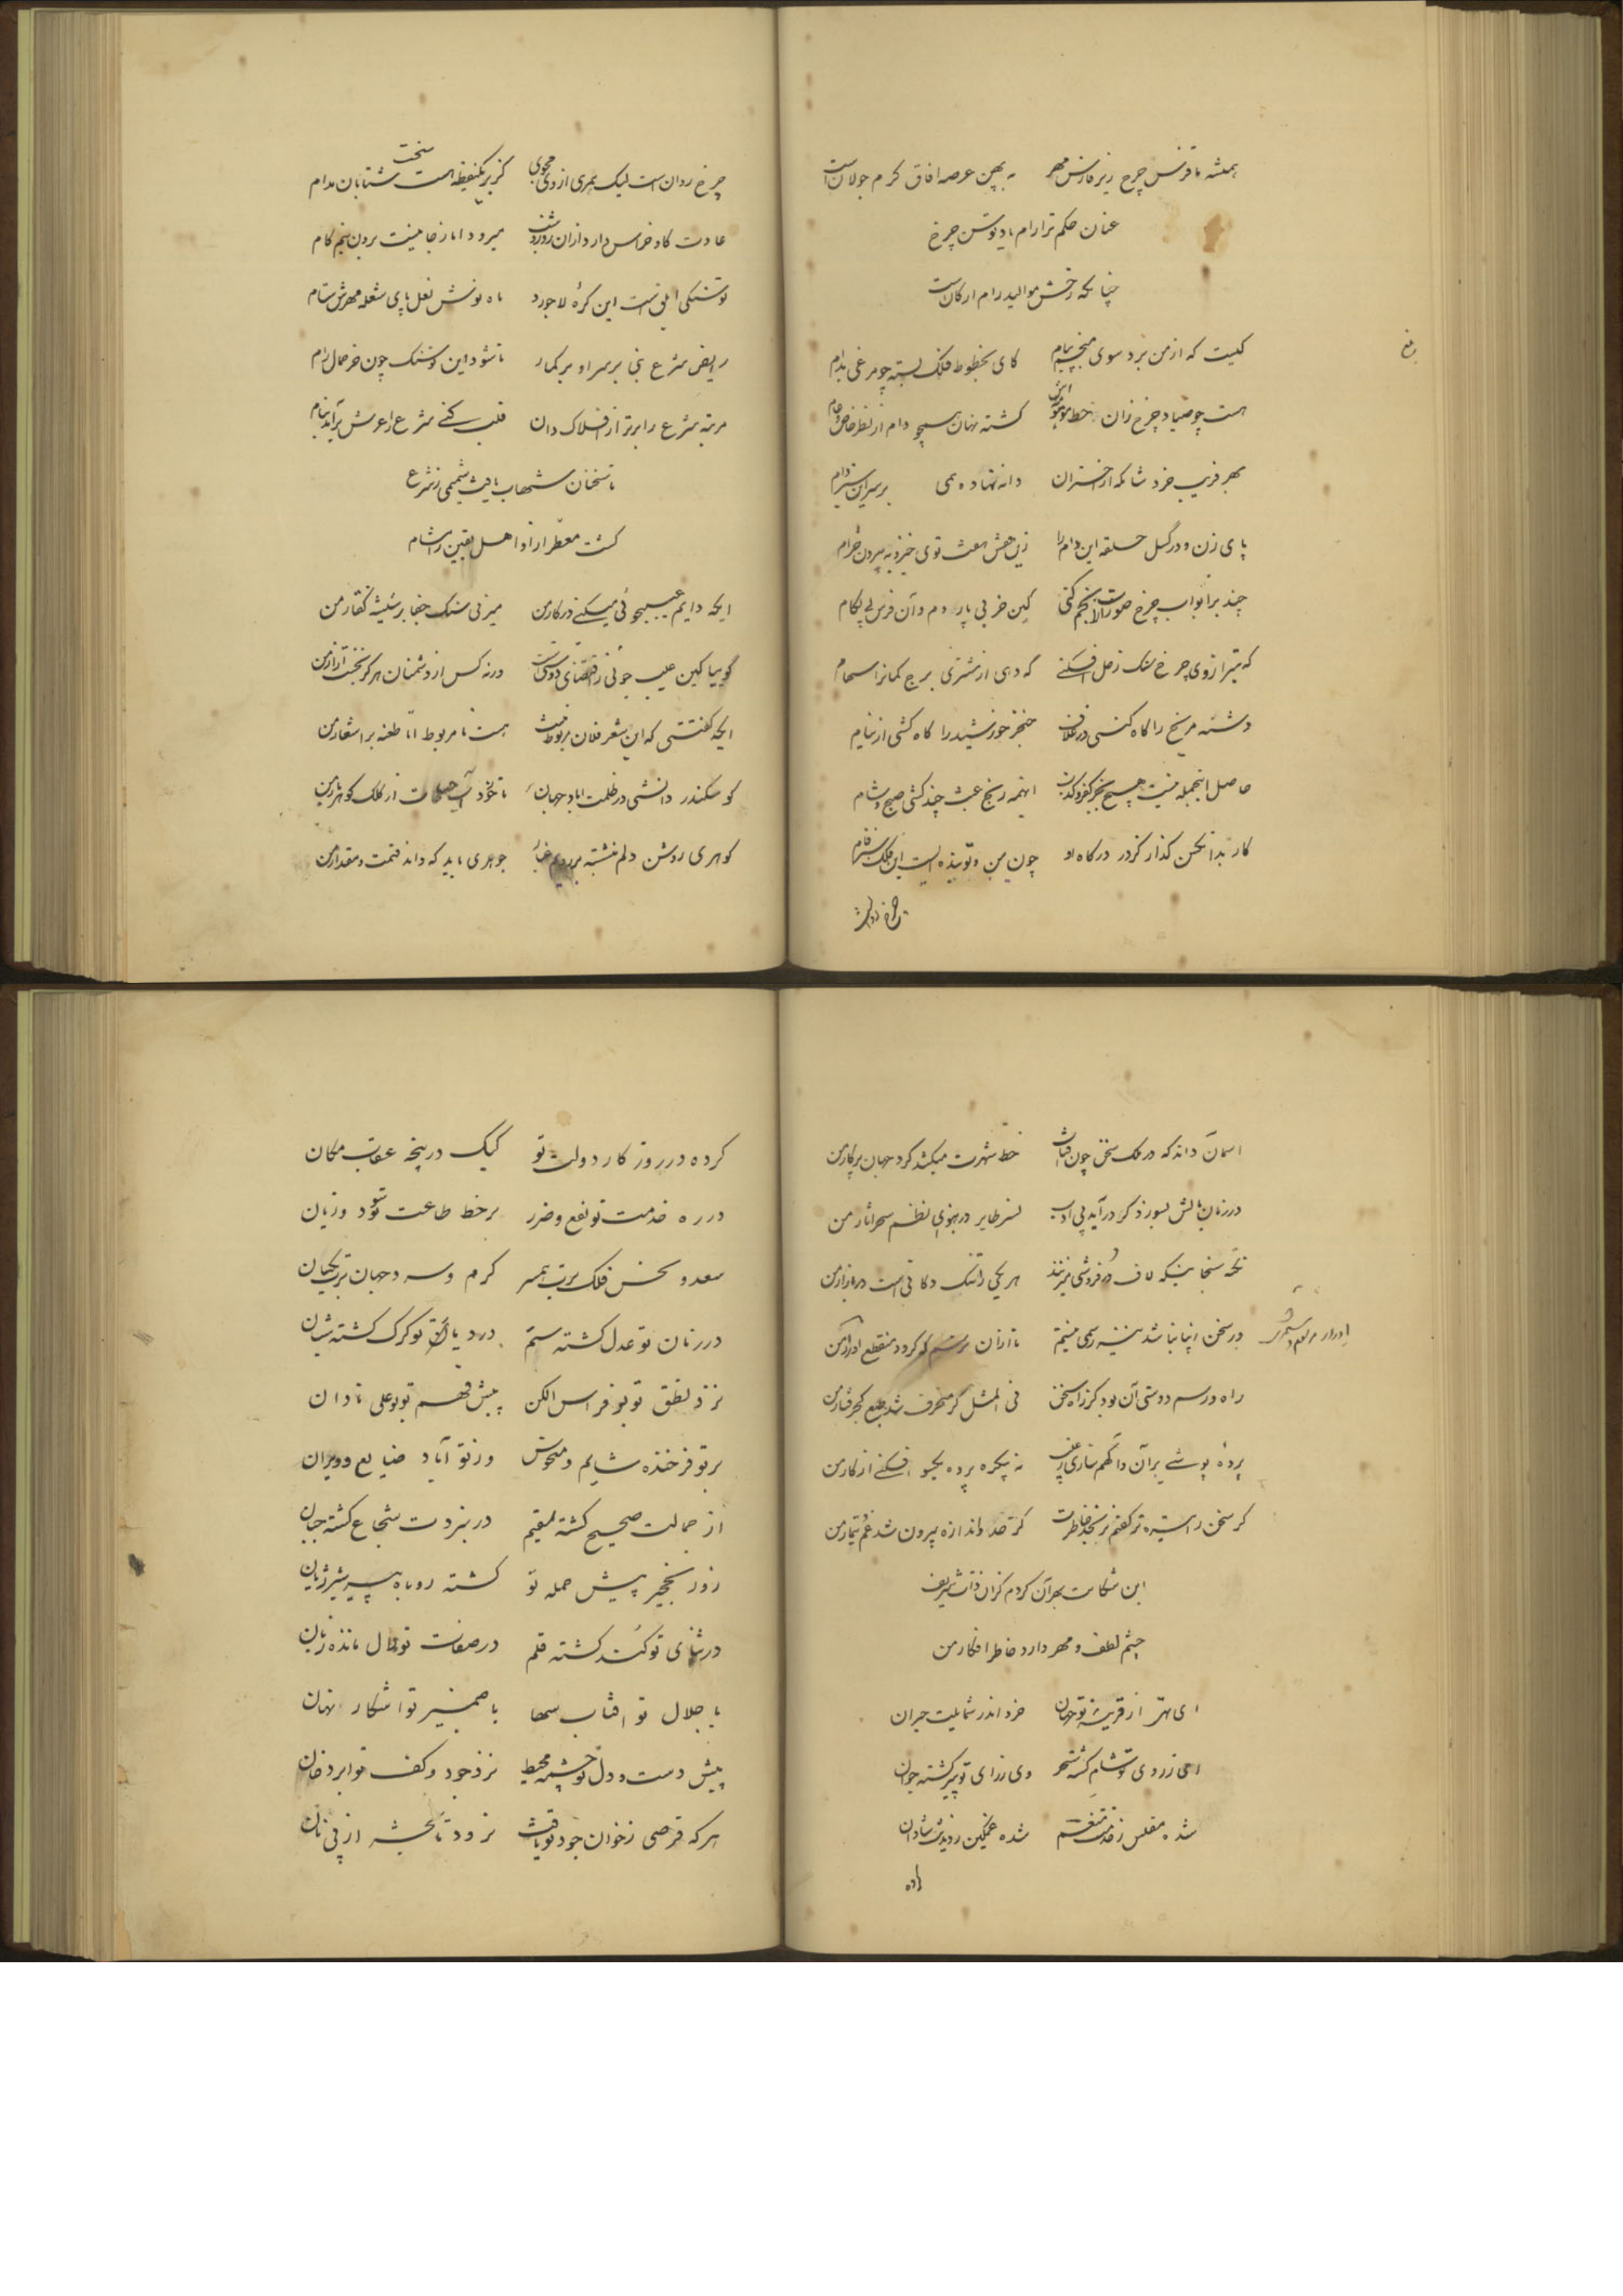 همیشه تا فرس چرخ زیر فارس مهر به پهن عرصه افاق کرم جولانست
عنان حکم ترا رام باد توسن چرخ
چنانکه رخش موالید رام ارکانست
کیست که از من برد سوی منجم پیام کای بخطوط فلک بسته چو مرغی بدام
هست چو صیاد چرخ زان خط موهوم کشته نهان همچو دام از نظر خاص و عام
بهر فریب خرد شامکه از اختران دانه نهاده همی بر سر این سبز دام
پای زن و در گسل حلقه این دام را زین قفس هفت توی خیز و به بیرون خرام
چند بر ابواب چرخ صور الانجم کنی کین خر بی پاردم وان فرس بی لکام
که تیر از وی چرخ سنک زحل افکنی که دهی از مشتری برج کمانرا سهام
دشنه مریخ را کاه کنی در غلاف خنجر خورشید را کاه کشی از نیام
حاصل اینجمله نیست هیچ بجز کفر و کذب اینهمه رنج عبث چند کشی صبح و شام
کار بدانکس گذار کز در درکاه او چون من و تو بنده ایست این فلک سبز فام
چرخ روان است لیک عمری از وی مجوی کز پی یکنقطه است سخت شتابان مدام
عادت کاو خراس دارد از ان روز و شب میرود اما ز جا نیست برون نیم کام
توسنکی ابلق است این کرهٔ لاجورد ماه نوش نعل پای شعله مهرش ستام
رایض شرع نبی بر سر او بر کمار تا شود این توسنک چون خر حمال رام
مرتبه شرع را برتر از افلاک دان قلب کنی شرع را عرش برآید بنام
تا سخنان شهاب یافت شمیمی ز شرع
کشت معطر از او اهل یقین را مشام
ایکه دایم عیبجوئی میکنی در کار من میزنی سنک جفا بر شیشه کفتار من
گوییا کین عیب جوئی ز اقتضای دوستیست ورنه کس از دشمنان هرکز نجست آزار من
ایکه کفتی که این شعر فلان مربوط نیست هست نامربوط اما طعنه بر اشعار من
کو سکندر دانشی در ظلمت اباد جهان تا خورد آب حیات از کلک کوهربار من
کوهری روشن دلم ننشسته بر رویم غبار جوهری باید که داند قیمت و مقدار من
اسمان داند که در ملک سخن چون افتاب خط شهرت میکشد کرد جهان پرکار من
در زمان بالش بسوزد کر درآید بی ادب نسر طایر در هوای نظم سحر اثار من
نکته سنجانیکه لاف در فروشی میزنند هر یکی را تنک دکانی است در بازار من
در سخن انبانباشد بنیه رسمی نیستم تا از ان ترسم که کردد منقطع ادرار من
راه و رسم دوستی آن بود کز راه سخن فی المثل گر منحرف شد طبع کجرفتار من
پردهٔ پوشی بران دانکهم سازی نه یکره پرده یکسو افکنی از کار من
کر سخن راست تر کفتم مرنجد خاطرت کز حد و اندازه بیرون شد غم تیمار من
این شکایت بهر آن کردم کزان ذات شریف
چشم لطف و مهر دارد خاطر افکار من
ای بهتر از قرینه تو جهان خرد اندر شمایلت حیران
ای ز روی تو شام کشته سحر وی ز رای تو پیر کشته جوان
شده مفلس ز خدمتت منعم شده غمکین ز دیدنت شادان
کرده در روز کار دولت تو کبک در پنجه عقاب مکان
در ره خدمت تو نفع و ضرر بر خط طاعت تو سود و زیان
سعد و نحس فلک برت همسر کرم و سرد جهان برت یکسان
در زمان تو عدل کشته ستم در دیار تو کرک کشته شبان
نزد نطق تو بوفراس الکن پیش فهم تو بوعلی نادان
بر تو فرخنده شایم و منحوش وز تو آباد ضایع و ویران
از جمالت صحیح کشته سقیم در نبردت شجاع کشته جبان
روز نخجیر پیش حمله تو کشته روباه پیر شیر ژیان
در ثنای تو کند کشته قلم در صفات تو لال مانده زبان
با جلال تو افتاب سها با ضمیر تو اشکار نهان
پیش دست و دل تو چشمه محیط نزد جود و کف تو ابر دخان
هر که قرصی ز خوان جود تو یافت نرود تا بحشر از پی نان